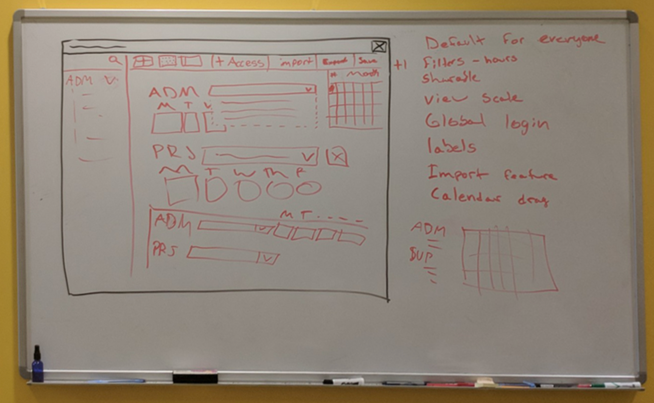 + Access import Export Save
ADM V
Month
ADM V
M T W
PRJ V X
M T W Th F
M T
ADM V
PRJ V
+1
Default for everyone
Filters - hours
sharable
view scale
Global login
labels
Import feature
Calendar drag
ADM
SUP